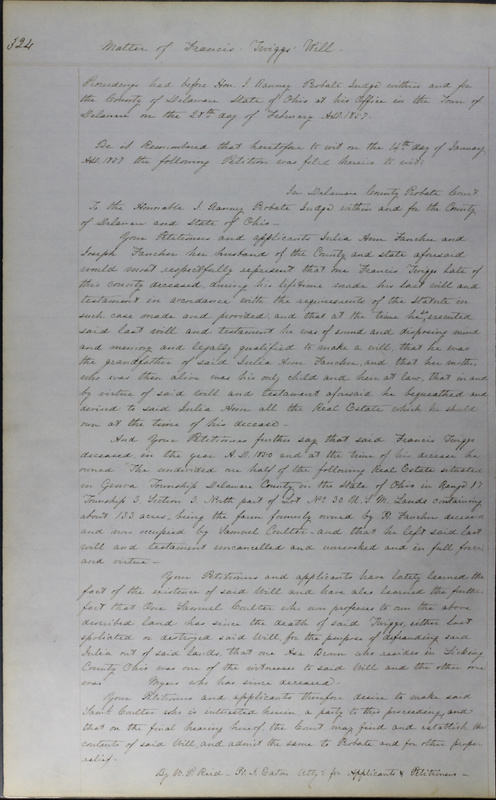 324
Matter of Francis Twiggs Will.
Proceedings had before Hon. I Ranney Probate Judge within and for
the County of Delaware State of Ohio at his Office in the Town of
Delaware on the 28th day of February A.D. 1857.
Be it Remembered that heretofore to wit on the 14th day of January
A.D. 1857 the following Petition was filed herein to wit:
In Delaware County Probate Court
To the Honorable I. Ranney Probate Judge within and for the County
of Delaware and State of Ohio—
Your Petitioners and applicants Julia Ann Fancher and
Joseph Fancher her husband of the County and state aforesaid
would most respectfully represent that one Francis Twiggs late of
this county deceased, during his lifetime made his last will and
testament in accordance with the requirements of the statute in
such case made and provided, and that at the time he executed
said last will and testament he was of sound and disposing mind
and memory and legally qualified to make a will, that he was
the grandfather of said Julia Ann Fancher, and that her mother
who was then alive was his only child and heir at law, that in and
by virtue of said will and testament aforesaid he bequeathed and
devised to said Julia Ann all the Real Estate which he should
own at the time of his decease—
And Your Petitioners further say that said Francis Twiggs
deceased in the year A.D. 1850 and at the time of his decease he
owned The undivided one half of the following Real Estate situated
in Genoa Township Delaware County in the State of Ohio in Range 17
Township 3, Section 3, North part of Lot No 30 U.S.M. Lands containing
about 133 acres, being the farm formerly owned by R. Fancher deceased
and now occupied by Samuel Coulter- and that he left said last
will and testament uncancelled and unrevoked and in full force
and virtue—
Your Petitioners and applicants have lately learned the
fact of the existence of said Will and have also learned the further
fact that One Samuel Coulter who now professes to own the above
described land has since the death of said Twiggs, either lost
spoliated or destroyed said Will for the purpose of defrauding said
Julia out of said lands, that one Asa Brown who resides in Licking
County Ohio was one of the witnesses to said Will and the other one
was Myers who has since deceased.
Your Petitioners and applicants therefore desire to make said
Saml Coulter who is interested herein a party to this proceeding, and
that on the final hearing hereof, the Court may find and establish the
contents of said Will and admit the same to Probate and for other proper
relief.
By W. P. Reid - Attys for Applicants & Petitioners—